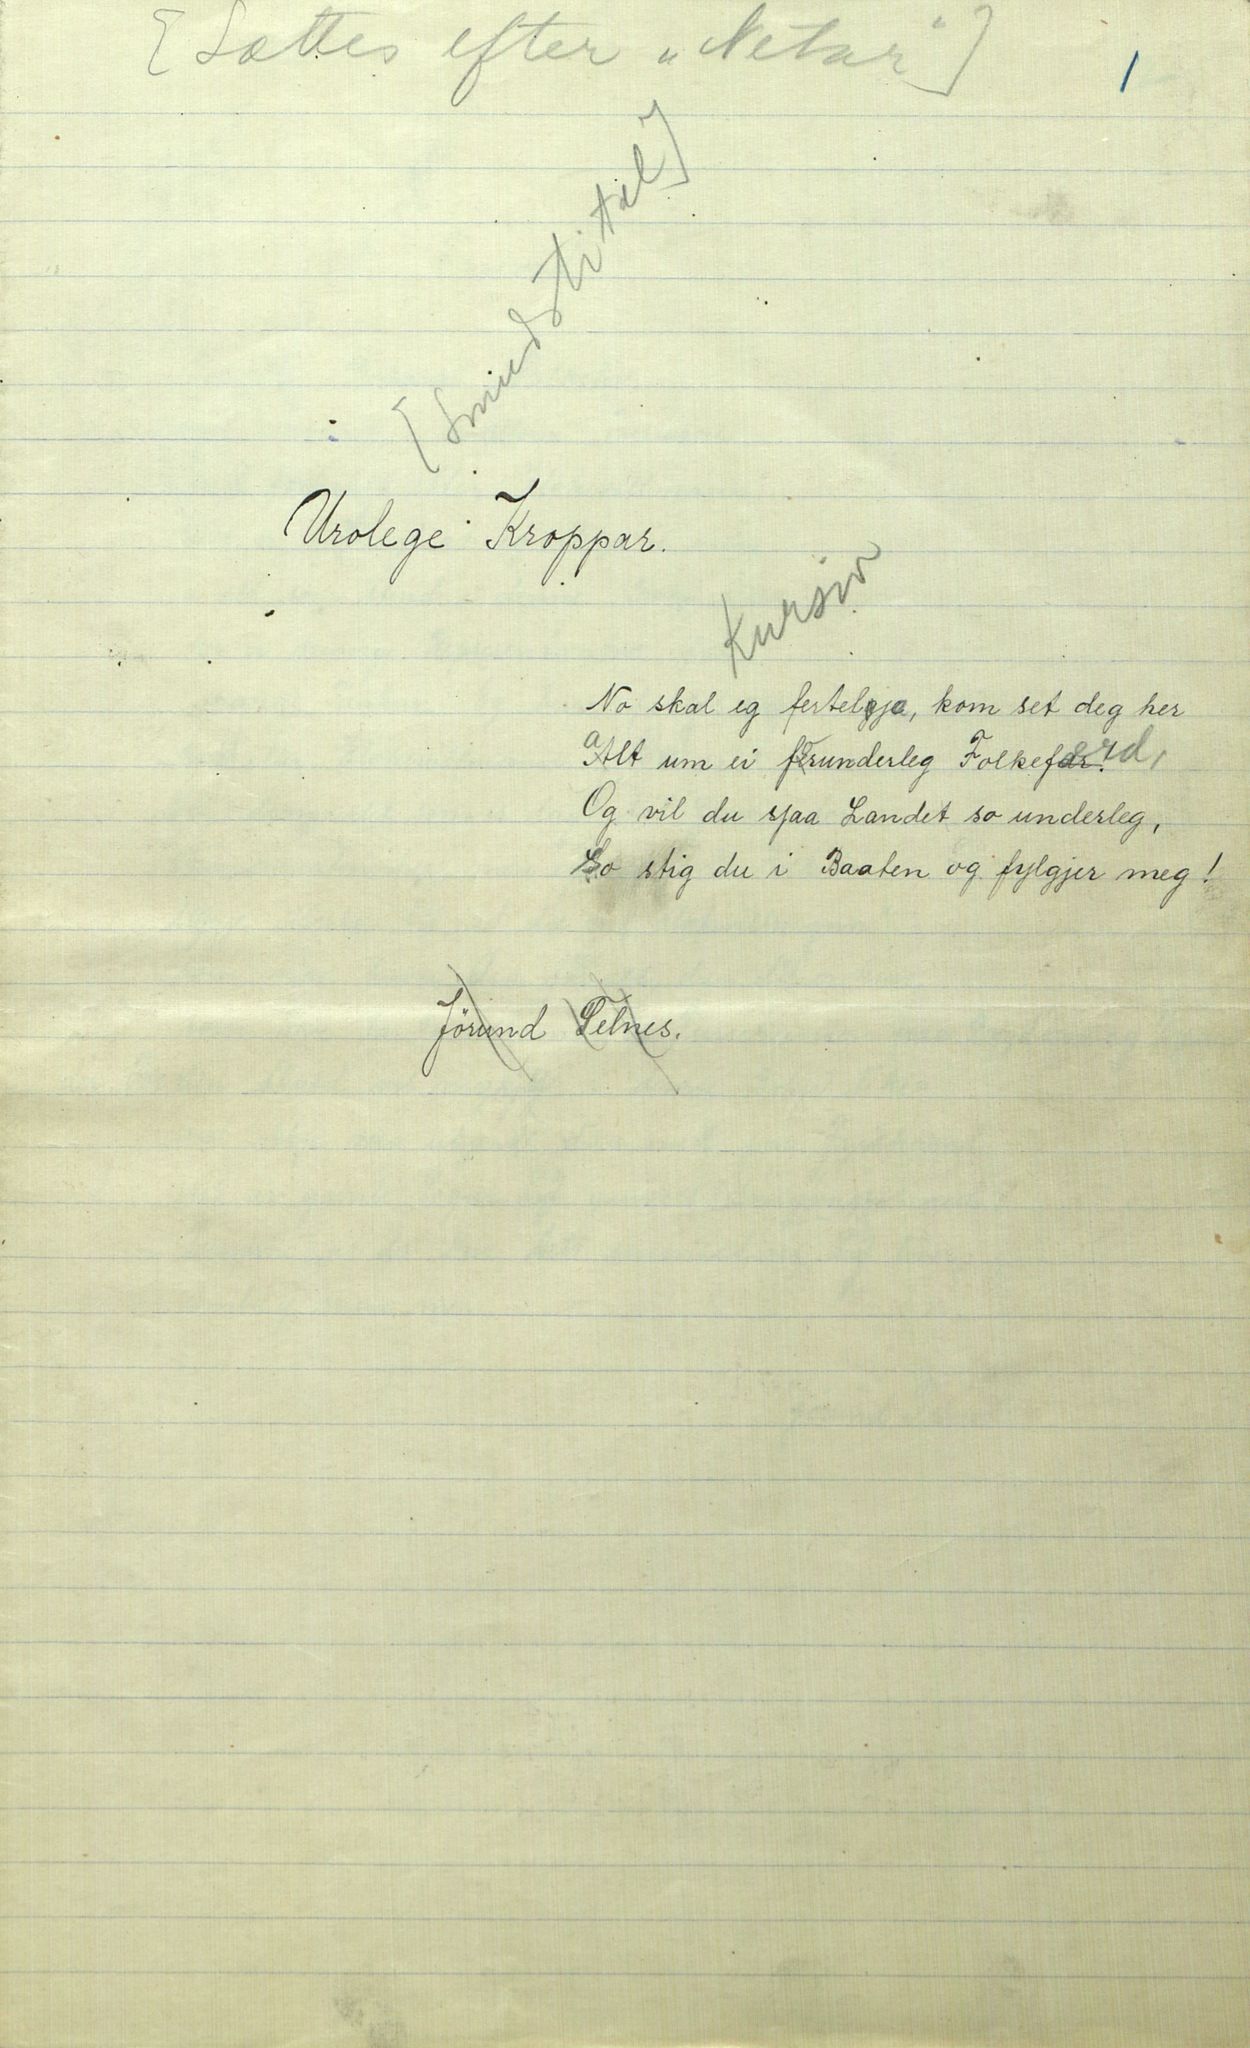 [Sættes efter „Netar"]
1
[Smudstitel]
Urolege Kroppar.
Kursiv
No skal eg fertelja, kom set deg her
alt um ei frunderleg Folkeferd,
Og vil du sjaa Landet so underleg,
So stig du i Baaten og fylgjer meg!
Jörund Telnes.